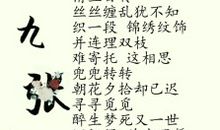 九张
丝丝缠乱犹不知
织一段 锦绣纹饰
并连理双枝
难寄托 这相思
兜兜转转
朝花夕拾却已迟
寻寻觅觅
醉生梦死又一世